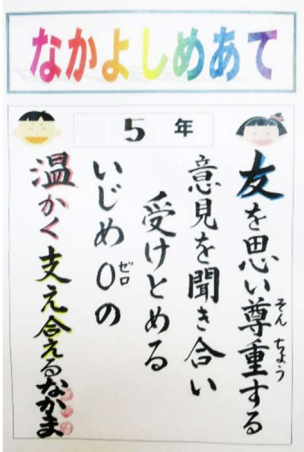 なかよしめあて
5年
友を思い尊重する
そんちょう
意見を聞き合い
受けとめる
いじめ0の
ゼロ
温かく支え合えるなかま